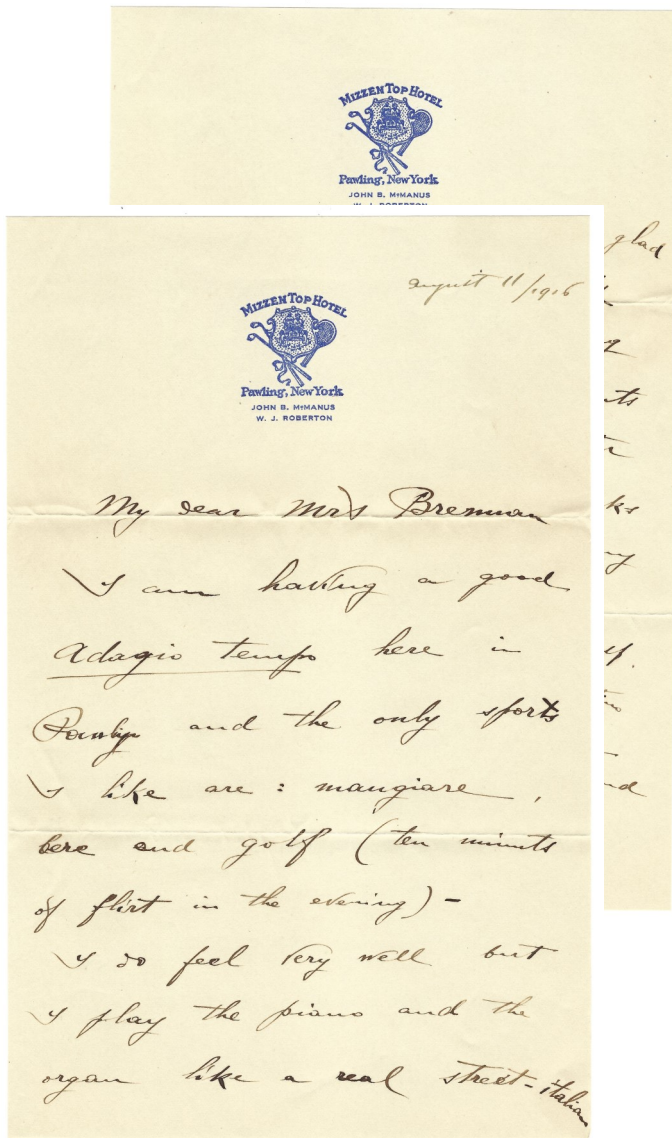 MIZZEN TOP HOTEL
Pawling, New York
JOHN B. McMANUS
W. J. ROBERTON
glad
ts
ks
y.
nd
MIZZEN TOP HOTEL
Pawling, New York
JOHN B. McMANUS
W. J. ROBERTON
august 11/1916
My dear Mrs Brennan
I am having a good
Adagio tempo here in
and the only sports
I like are : mangiare ,
bere and golf (ten minuts
of flirt in the evening) -
I do feel very well but
I play the piano and the
organ like a real street-italian